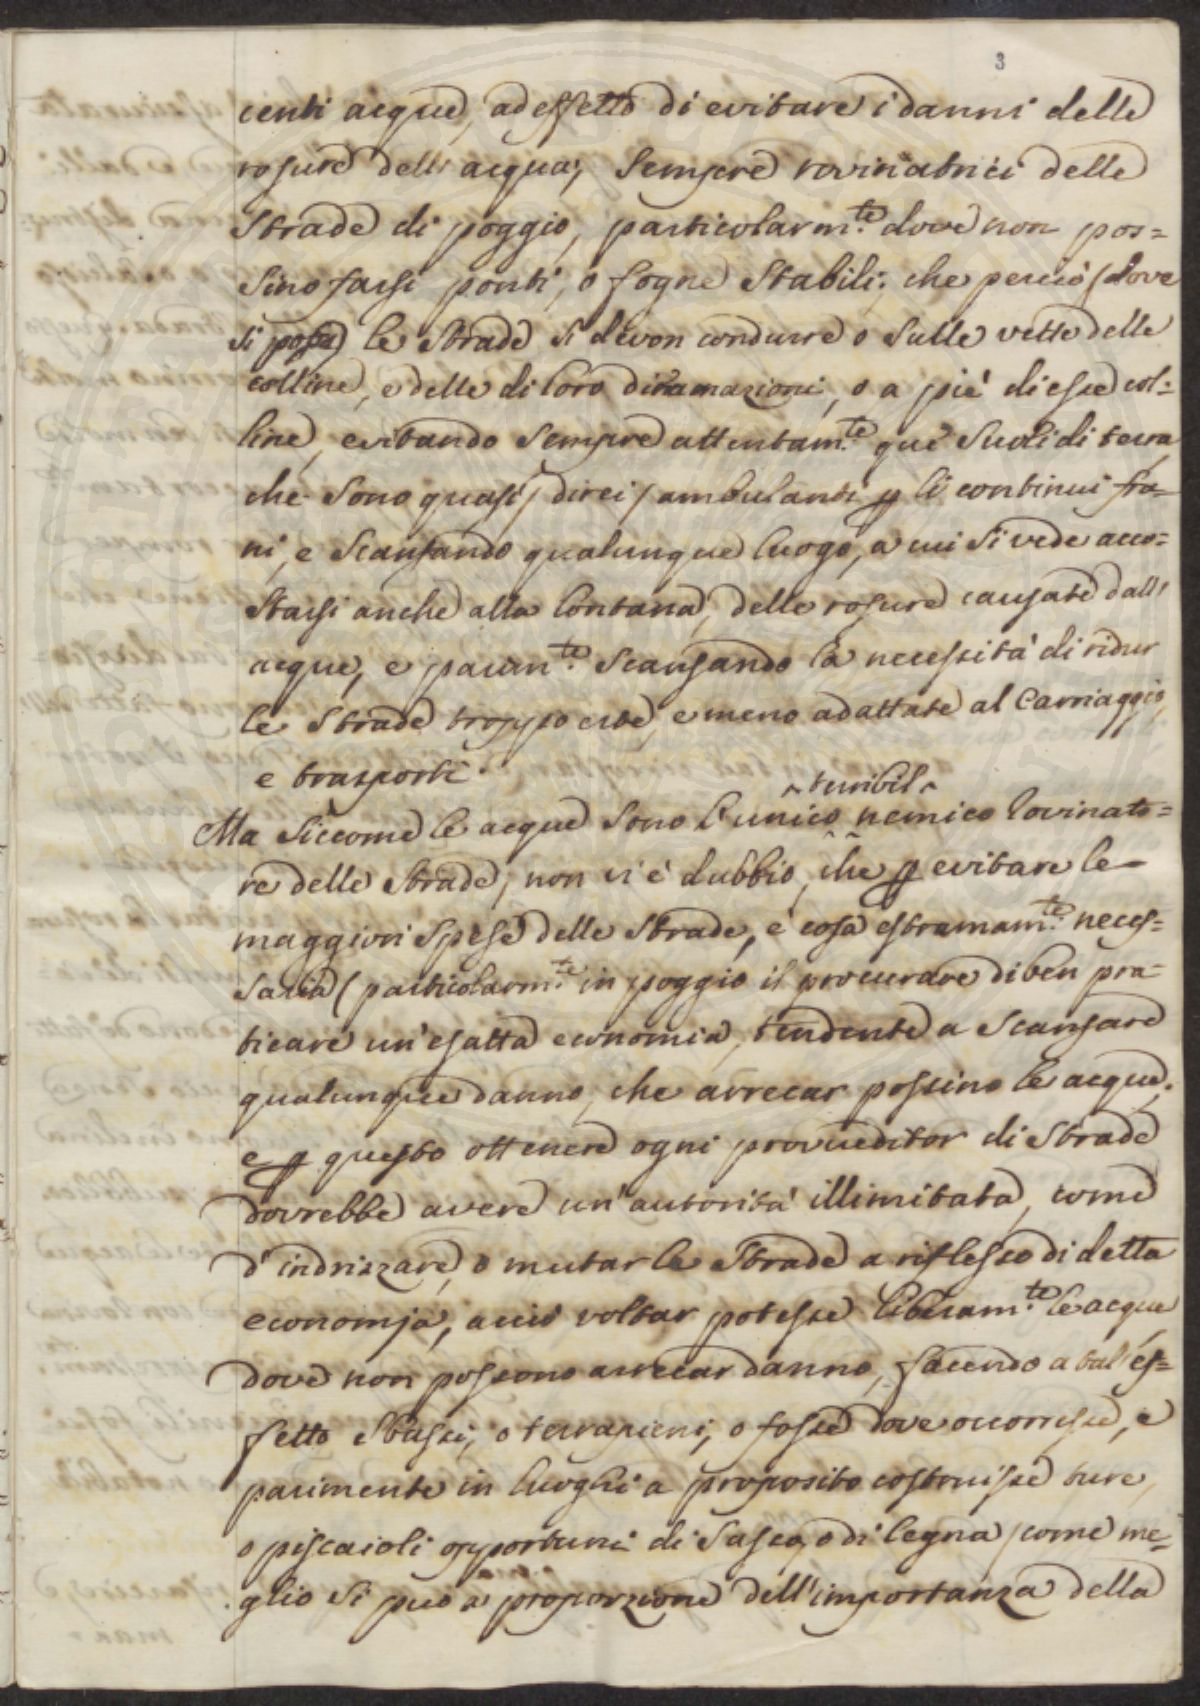 3
centi acque, ad effetto di evitare i danni delle
rosure dell'acqua; sempre rovinatrici delle
Strade di poggio, particolarm.te dove non pos=
sino farsi ponti, o fogne stabili; che perciò (dove
si possa) le Strade si devon condurre o sulle vette delle
colline, e delle di loro diramazioni, o a piè di esse col=
line, evitando sempre attentam.te que' suoli di terra
che sono quasi (direi) ambulanti p li continui fra=
ni, e scansando qualunque luogo, a cui si vede acco=
starsi anche alla lontana, delle rosure causate dall'
acque, e parim.te scansando la necessità di ridur
le Strade troppo erte, e meno adattate al Carriaggio,
e trasporti.
^ terribil ^
Ma siccome le acque sono l'unico nemico rovinato=
re delle Strade, non vi è dubbio, che p evitare le
maggiori spese delle Strade, è cosa estramam.te neces=
saria (particolarm.te in poggio il procurare di ben pra=
ticare un'esatta economia, tendente a scansare
qualunque danno, che arrecar possino le acque;
e p questo ottenere ogni provveditor di Strade
dovrebbe avere un'autorità illimitata, come
d'indrizzare, o mutar le Strade a riflesso di detta
economja, acciò voltar potesse liberam.te le acque
dove non possono arrecar danno, facendo a tal'ef=
fetto sbassi, o terrapieni, o fosse dove occorresse, e
parimente in luoghi a proposito costruisse ture,
o pescaioli opportuni di sasso, o di legna (come me=
glio si può a proporzione dell'importanza della